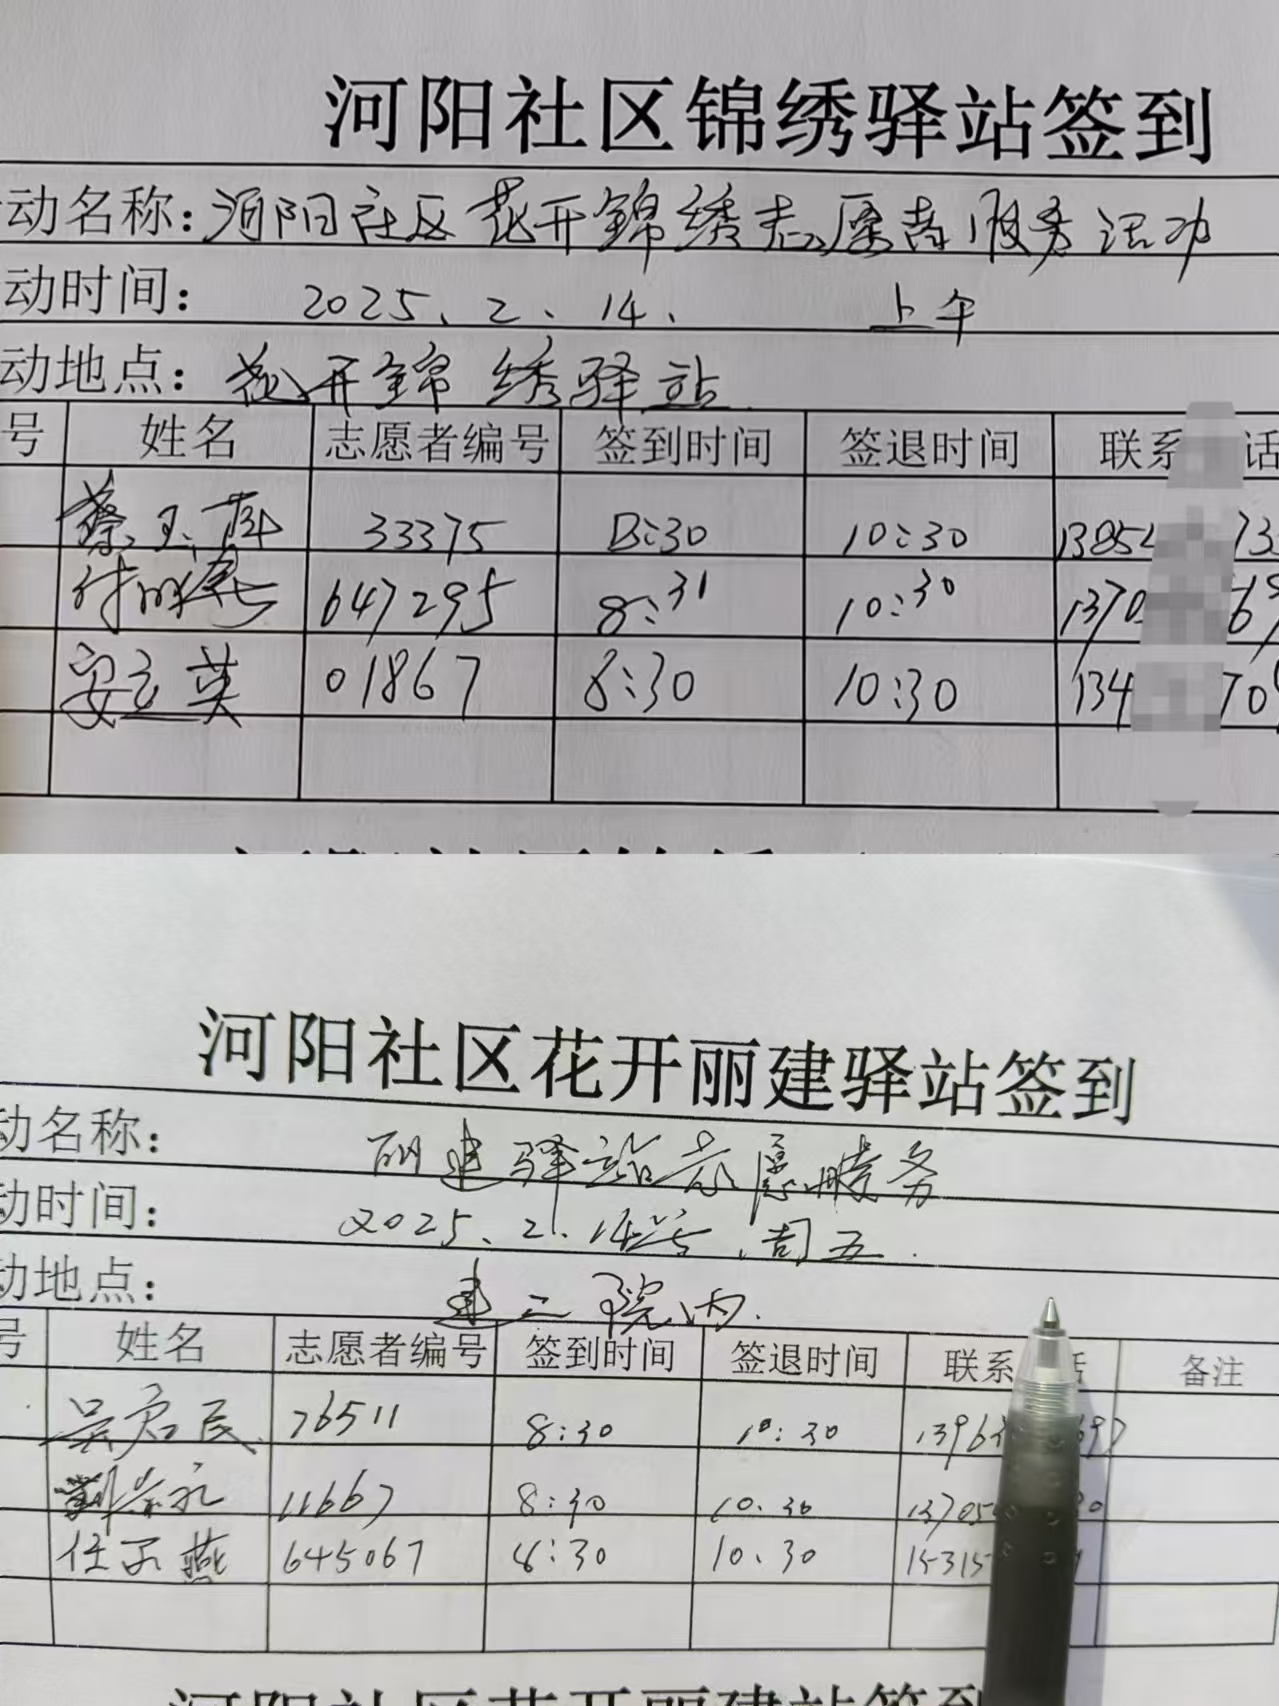 河阳社区锦绣驿站签到
动名称：河阳社区花开锦绣志愿者服务活动
动时间： 2025、2、14、 上午
动地点：花开锦绣驿站
号 姓名 志愿者编号 签到时间 签退时间 联系 话
蔡玉萍 33375 8:30 10:30 1385 73
付 647295 8:31 10:30 1370 69
安立英 01867 8:30 10:30 134 70
河阳社区花开丽建驿站签到
动名称： 丽建驿站志愿服务
动时间： 2025、2、14号、周五.
动地点： 建二院内.
号 姓名 志愿者编号 签到时间 签退时间 联系 话 备注
吴启民 76511 8:30 10:30 1396 697
荣礼 11667 8:30 10.30 13705 0
任子燕 645067 8:30 10、30 15315
河阳社区花开丽建驿站签到